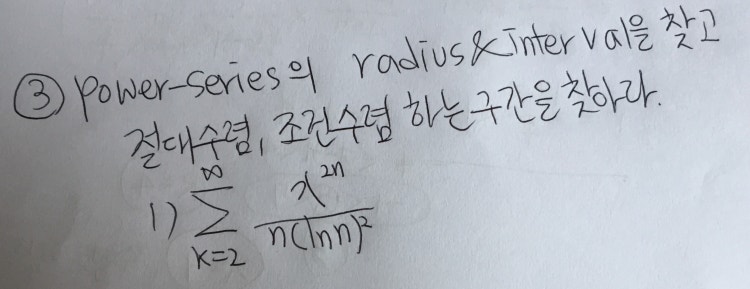 ③ power-series의 radius&interval을 찾고
절대수렴, 조건수렴 하는 구간을 찾아라.
1) ∑_{k=2}^{∞} x^{2n} / n(ln n)^2